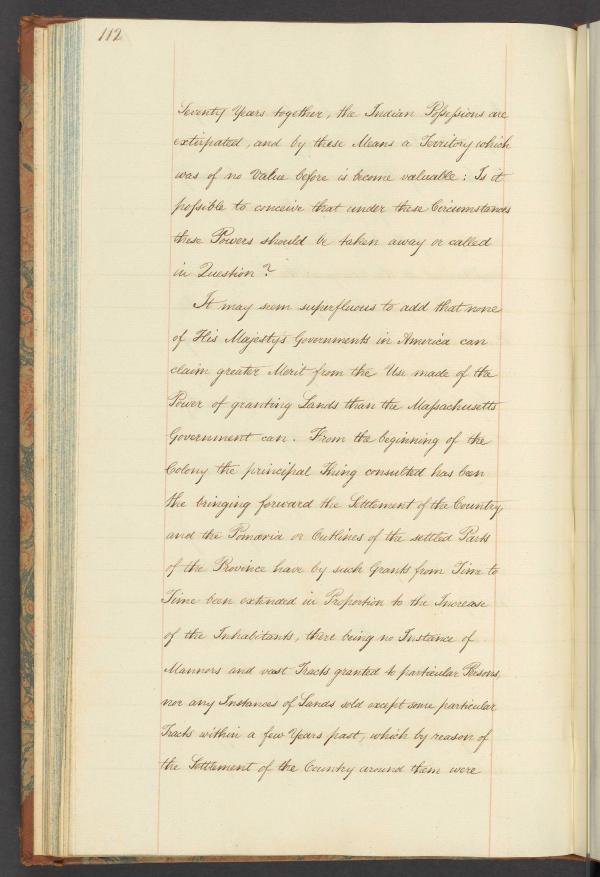 112
Seventy Years together, the Indian Poſseſsions are
extirpated, and by these Means a Territory which
was of no Value before is become valuable: Is it
poſsible to conceive that under these Circumstances
these Powers should be taken away or called
in Question?
It may seem superfluous to add that none
of His Majestys Governments in America can
claim greater Merit from the Use made of the
Power of granting Lands than the Maſsachusetts
Government can. From the beginning of the
Colony the principal Thing consulted has been
the bringing forward the Settlement of the Country,
and the Pomœria or Outlines of the settled Parts
of the Province have by such Grants from Time to
Time been extended in Proportion to the Increase
of the Inhabitants, there being no Instance of
Mannors and vast Tracts granted to particular Persons,
nor any Instances of Lands sold except some particular
Tracts within a few Years past, which by reason of
the Settlement of the Country around them were